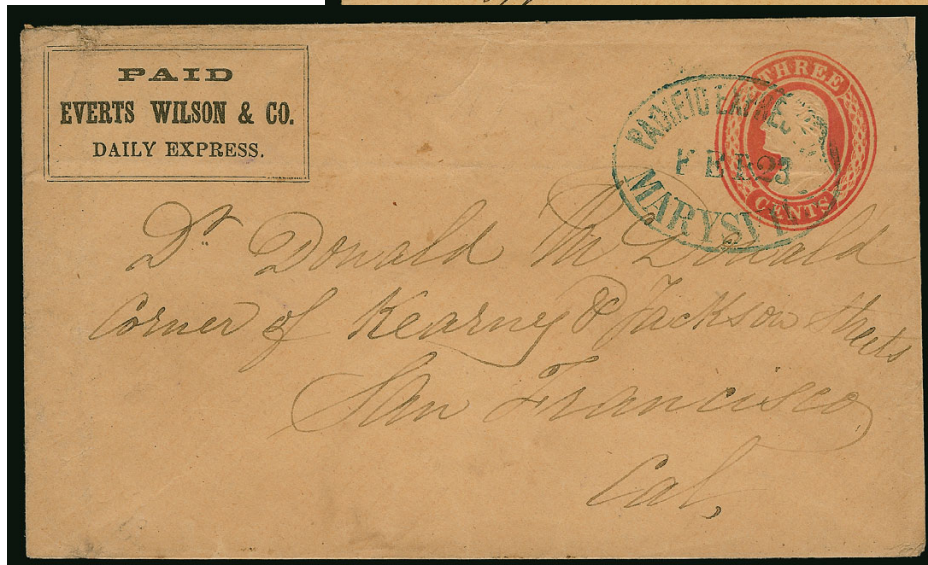 PAID
EVERTS WILSON & CO.
DAILY EXPRESS.
THREE
CENTS
PACIFIC EXPRES
FEB 23
MARYSV
Dr Donald McDonald
Corner of Kearny & Jackson streets
San Francisco
Cal,